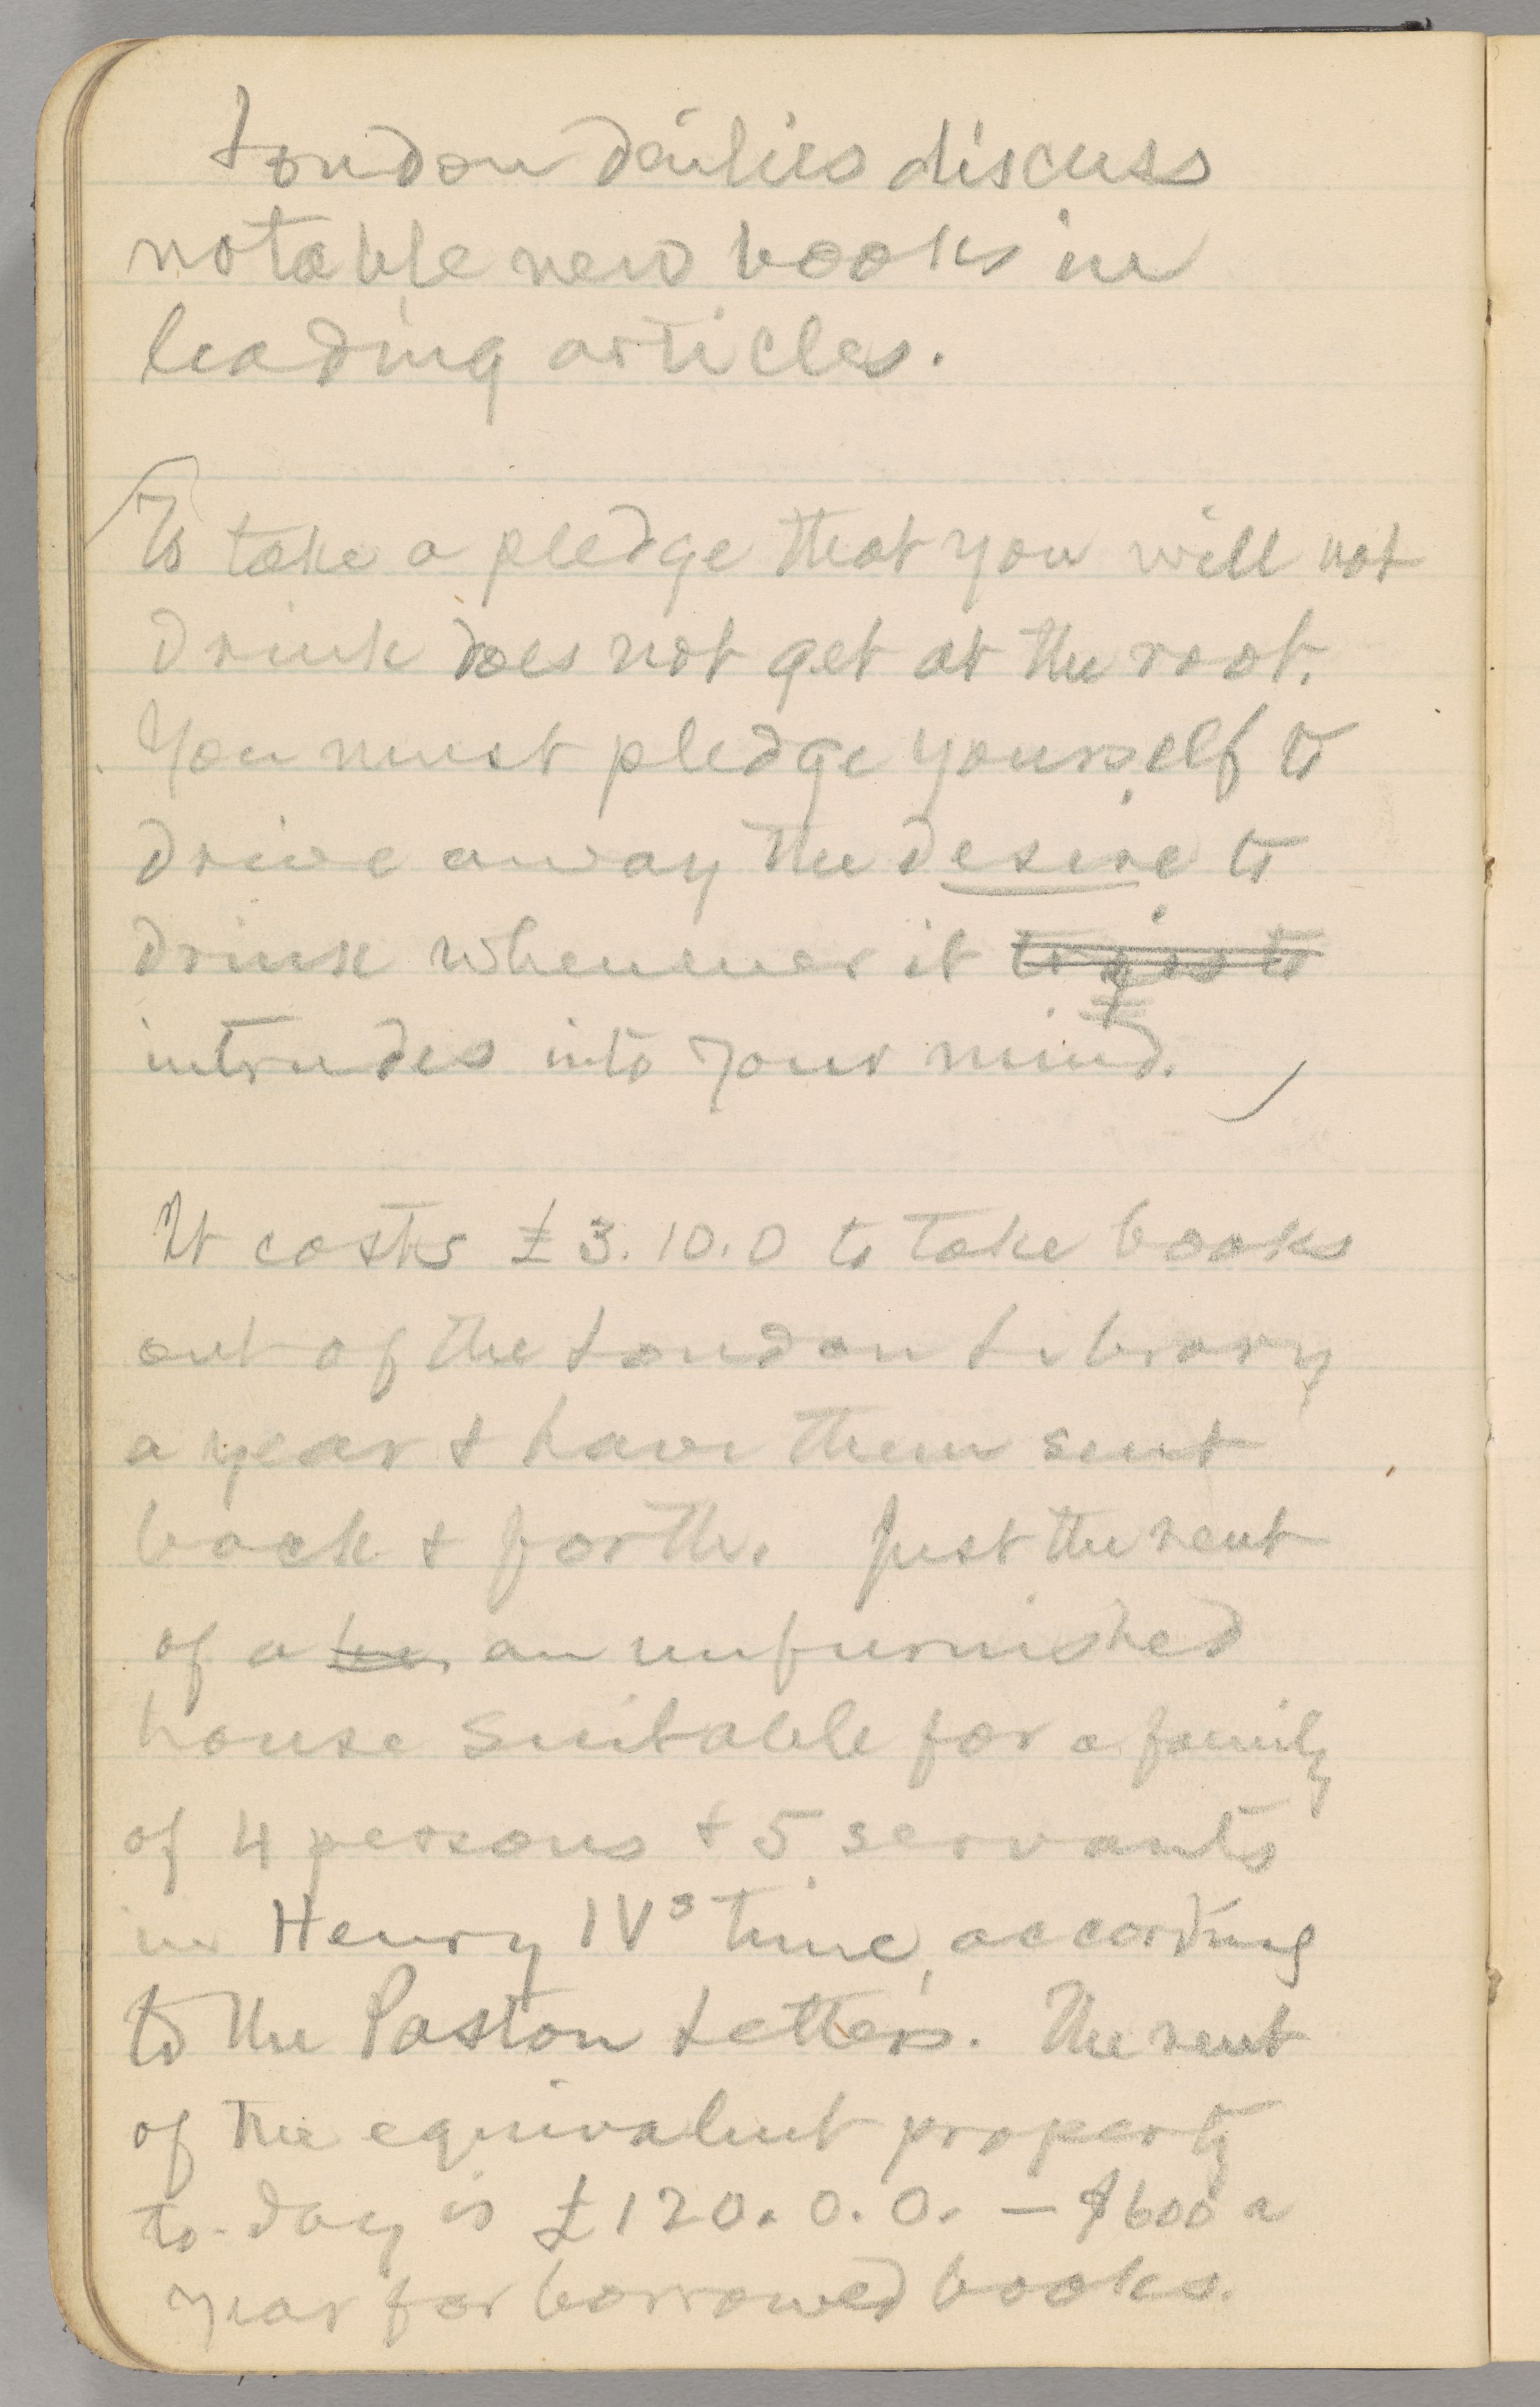 London dailies discuss
notable new books in
leading articles.
To take a pledge that you will not
drink does not get at the root.
You must pledge yourself to
drive away the desire to
drink whenever it
intrudes into your mind.
It costs £3.10.0 to take books
out of the London Library
a year & have them sent
back & forth. Just the rent
of a an unfurnished
house suitable for a family
of 4 persons & 5 servants
in Henry IVs time, according
to the Paston Letters. The rent
of the equivalent property
to-day is £120.0.0. — $600 a
year for borrowed books.